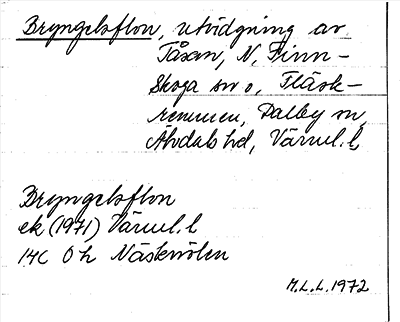 Bryngelsflon, utvidgning av
Tåsan, N. Finn-
Skoga sn o, Fläsk-
remmen, Dalby sn,
Älvdals hd, Värml. l,
Bryngelsflon
ek (1971) Värml. l
14C Oh Näsknölen
M.L.L. 1972